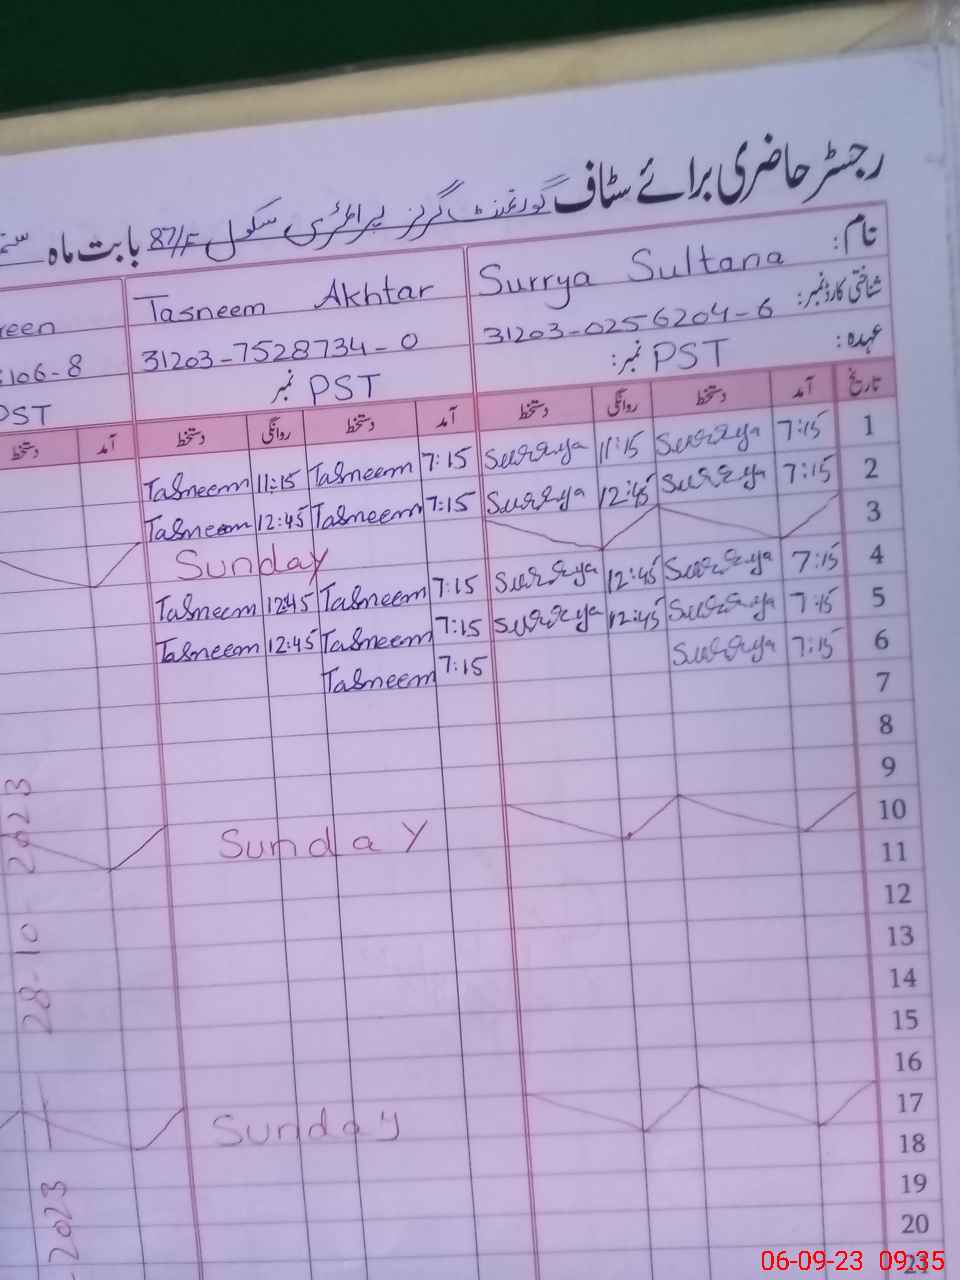 رجسٹر حاضری برائے سٹاف گورنمنٹ گرلز پرائمری سکول 87/F بابت ماہ
نام: Surrya Sultana Tasneem Akhtar
شناختی کارڈ نمبر: 31203-0256204-6 31203-7528734-0 106-8
عہدہ: PST نمبر: PST نمبر PST
تاریخ آمد دستخط روانگی دستخط آمد دستخط روانگی دستخط آمد دستخط
1 7:15 Surrya 11:15 Surrya 7:15 Tasneem 11:15 Tasneem
2 7:15 Surrya 12:45 Surrya 7:15 Tasneem 12:45 Tasneem
3 Sunday
4 7:15 Surrya 12:45 Surrya 7:15 Tasneem 12:45 Tasneem
5 7:15 Surrya 12:45 Surrya 7:15 Tasneem 12:45 Tasneem
6 7:15 Surrya 7:15 Tasneem
7
8
9
10 Sunday
11
12
13
14
15
16
17 Sunday
18
19
20
21
28-10-2023
-2023
06-09-23 09:35